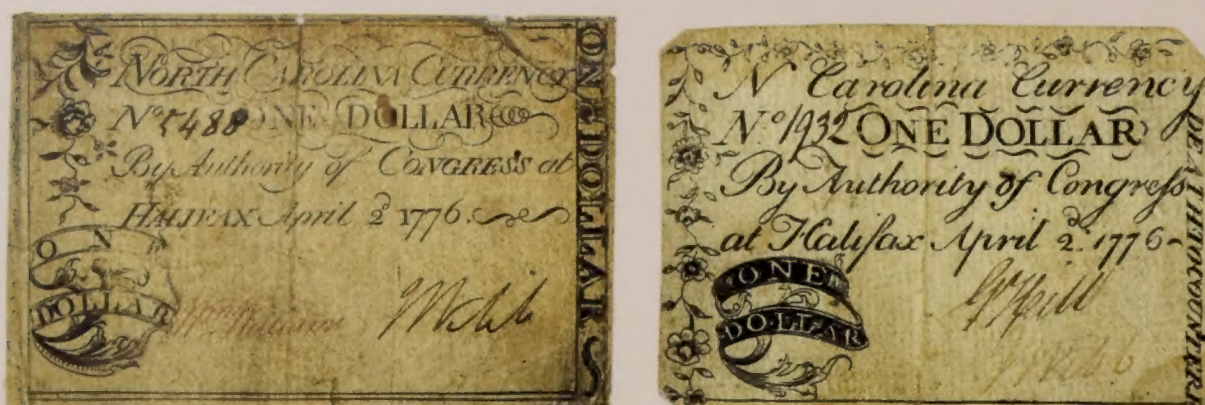 NORTH CAROLINA CURRENCY
No 5488 ONE DOLLAR
By Authority of CONGRESS at
HALIFAX April 2d 1776.
ONE
DOLLAR
ONE DOLLAR S
N Carolina Currency
No 1932 ONE DOLLAR
By Authority of Congress
at Halifax April 2d. 1776
ONE
DOLLAR
G Hill
DEATH TO COUNTERF